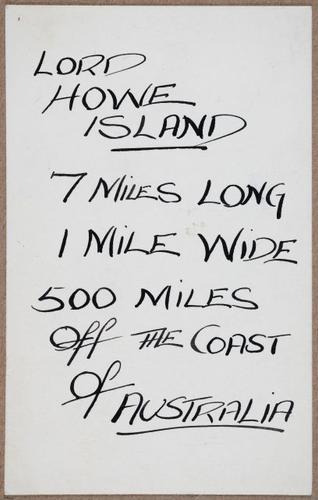 LORD
HOWE
ISLAND
7 MILES LONG
1 MILE WIDE
500 MILES
Off THE COAST
Of
AUSTRALIA